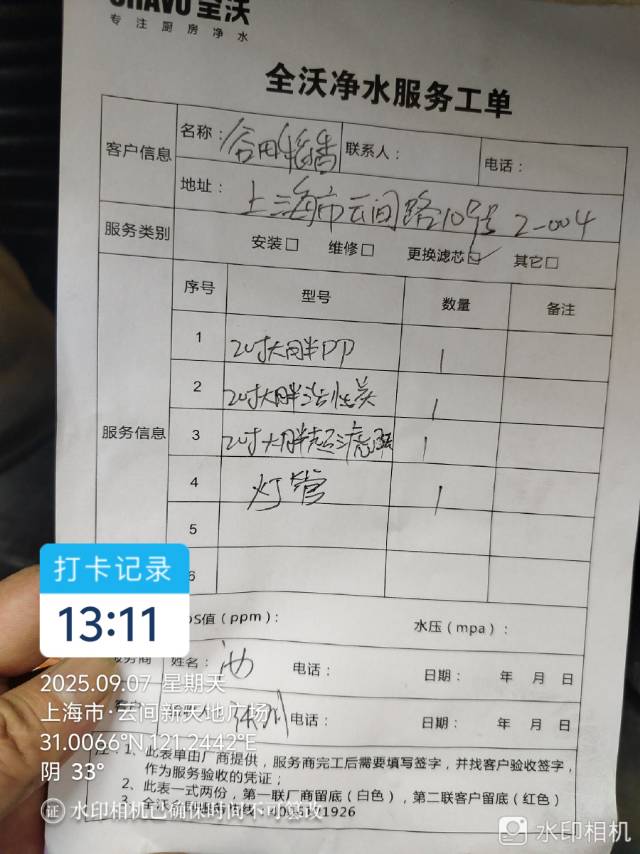 全沃
专注厨房净水
全沃净水服务工单
客户信息
名称：
联系人：
电话：
地址：上海市云间路10号 2-004
服务类别
安装□ 维修□ 更换滤芯☑ 其它□
服务信息
序号 型号 数量 备注
1 20寸大胖PP 1
2 20寸大胖活性炭 1
3 20寸大胖超滤 1
4 灯管 1
5
6
DS值（ppm）： 水压（mpa）：
服务商 姓名： 电话： 日期： 年 月 日
电话： 日期： 年 月 日
1、此表单由厂商提供，服务商完工后需要填写签字，并找客户验收签字，
作为服务验收的凭证；
2、此表一式两份，第一联厂商留底（白色），第二联客户留底（红色）
打卡记录
13:11
2025.09.07 星期天
上海市·云间新天地广场
31.0066°N,121.2442°E
阴 33°
证 水印相机已确保时间不可篡改
水印相机